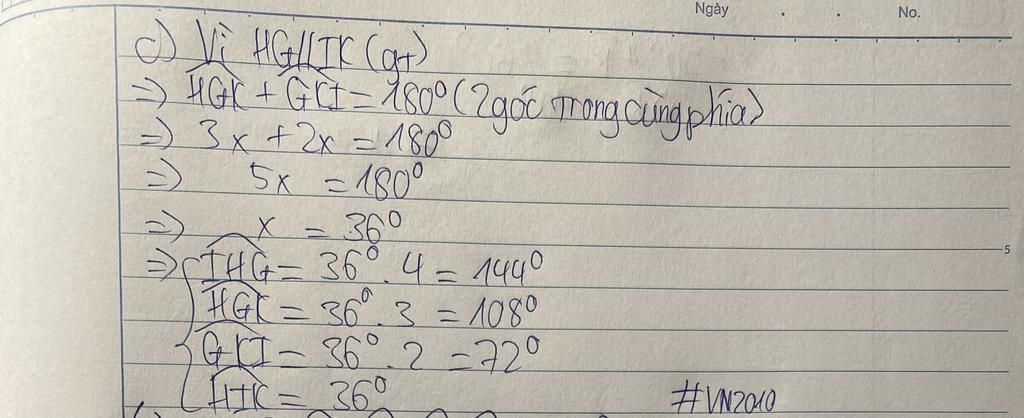 Ngày . . No.
c) Vì HG//IK (gt)
=> HGK + GKI = 180° (2 góc trong cùng phía)
=> 3x + 2x = 180°
=> 5x = 180°
=> x = 36°
5
=> { IHG = 36° . 4 = 144°
HGK = 36° . 3 = 108°
GKI = 36° . 2 = 72°
HIK = 36°
#VN2010